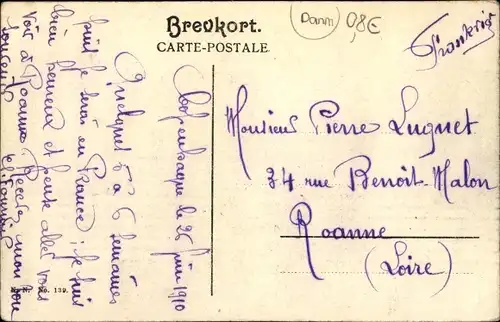 Brevkort.
CARTE-POSTALE.
(Danm)
0,8€
Frankrig
Copenhague le 26 juin 1910
Quelques 5 à 6 semaines
puis je serai en France; je suis
bien heureux et peux aller vous
voir à Roanne. Recevez mon bon
souvenir
Monsieur Pierre Luguet
34 rue Benoit-Malon
Roanne
(Loire)
No. 139.